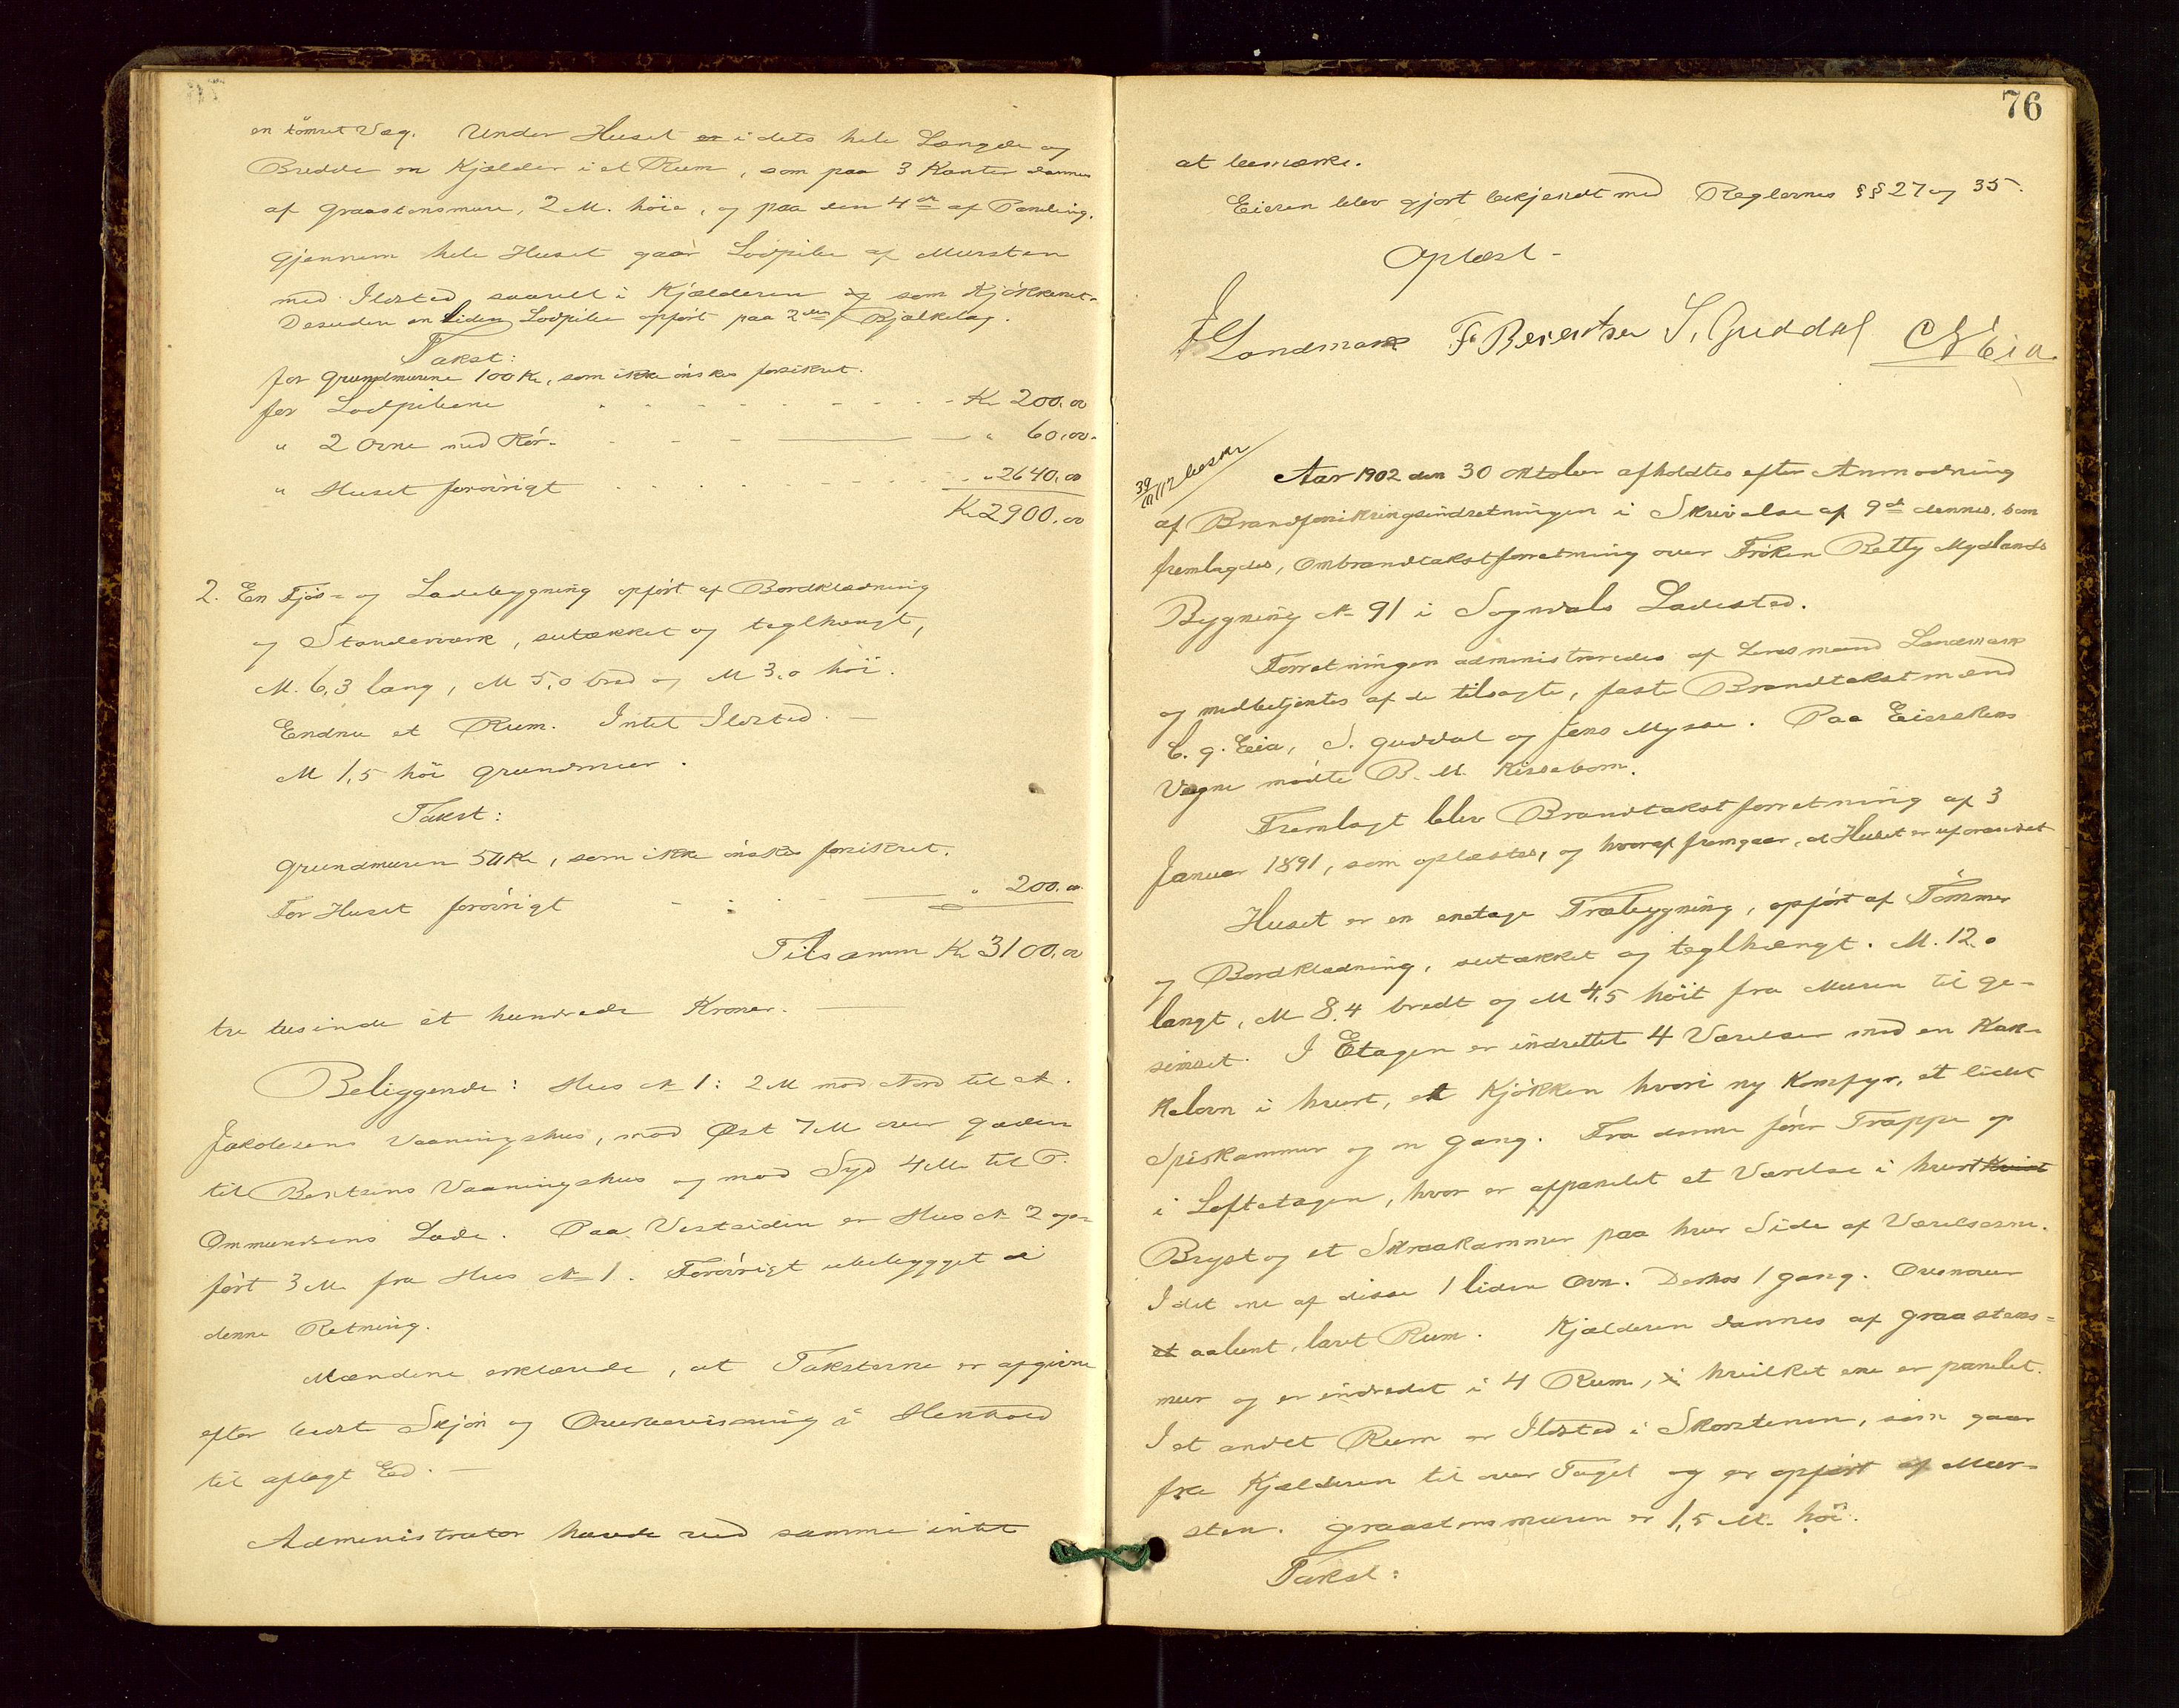 en tömret Væg. Under Huset er i dets hele Længde og
Bredde en Kjælder i et Rum, som paa 3 Kanter dannes
af Graastensmure, 2 M. höie, og paa den 4de af Panding.
Gjennem hele Huset gaar Lodpibe af Mursten
med Ildsted saavel i Kjælderen og som Kjökkenet.
Desuden en liden Lodpibe opfört paa 2den Bjælkelag.
Takst:
for Grundmurene 100 Kr, som ikke önskes forsikret.
for Lodpibene Kr 200.00
" 2 Ovne med Rör. " 60.00.
" Huset forövrigt " 2640.00
Kr 2900.00
2. En Fjös- og Ladebygning opfört af Bordklædning
og Standerværk, sutækket og teglhængt,
M. 6,3 lang, M 5,0 bred og M 3,0 höi.
Endnu et Rum. Intet Ildsted.
M 1,5 höi Grundmur.
Takst:
Grundmuren 50 Kr, som ikke önskes forsikret.
For Huset forövrigt " 200.00
Tilsamm Kr 3100.00
tre tusinde et hundrede Kroner.
Beliggende: Hus N 1: 2 M mod Nord til N.
Jakobsens Vaaningshus, mod Øst 7 M over Gaden
til Bentsens Vaaningshus og mod Syd 4 M til P.
Ommundsens Lade. Paa Vestsiden er Hus N 2 op-
fört 3 M fra Hus N 1. Forövrigt ubebygget i
denne Retning.
Mændene erklærede, at Taksterne er afgivne
efter bedste Skjön og Overbevisning i Henhold
til aflagt Ed.
Administrator havde ved samme intet
76
at bemærke.
Eieren blev gjort bekjendt med Reglernes §§ 27 og 35.
Oplæst -
Landmark F. Berentsen S. Guddal C G Eia
Aar 1902 den 30 Oktober afholdtes efter Anmodning
af Brandforsikringsindretningen i Skrivelse af 9de dennes, som
fremlagdes, Ombrandtakstforretning over Fröken Betty Mydlands
Bygning N 91 i Sogndals Ladested.
Forretningen administreredes af Lensmand Landmark
og medbetjentes af de tilsagte, faste Brandtakstmænd
C. G. Eia, S. Guddal og Jens Mysse. Paa Eierskens
Vegne mödte B. M. Kissebom.
Fremlagt blev Brandtakstforretning af 3
Januar 1891, som oplæstes, og hvoraf fremgaar, at Huset er uforandret
Huset er en enetage Træbygning, opfört af Tömmer
og Bordklædning, sutækket og teglhængt. M. 12.0
langt, M 8.4 bredt og M 4,5 höit fra Muren til Ge-
simset. I Etagen er indrettet 4 Værelser med en Kak-
kelovn i hvert, et Kjökken hvori ny Komfyr, et lidet
Spiskammer og en Gang. Fra denne förer Trappe op
i Loftetagen, hvor er afpanelet et Værelse i hvert Kvist
Bryst og et Skraakammer paa hver Side af Værelserne.
I det ene af disse 1 liden Ovn. Derhos 1 Gang. Ovenover
et aabent, lavt Rum. Kjælderen dannes af Graastens-
mur og er indredet i 4 Rum, i hvilket ene er panelet.
I et andet Rum er Ildsted i Skorstenen, som gaar
fra Kjælderen til over Taget og er opfört af Mur-
sten. Graastensmuren er 1,5 M. höi.
Takst: